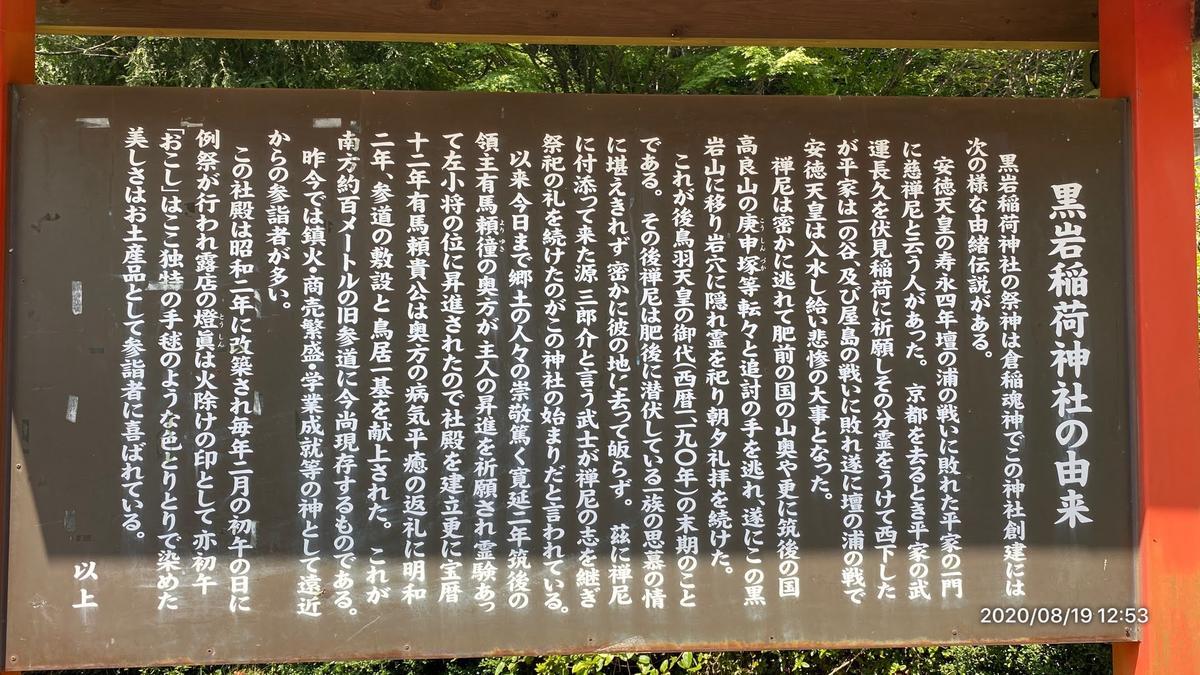 黒岩稲荷神社の由来
黒岩稲荷神社の祭神は倉稲魂神でこの神社創建には
次の様な由緒伝説がある。
安徳天皇の寿永四年壇の浦の戦いに敗れた平家の一門
に慈禅尼と云う人があった。 京都を去るとき平家の武
運長久を伏見稲荷に祈願しその分霊をうけて西下した
が平家は一の谷、及び屋島の戦いに敗れ遂に壇の浦の戦で
安徳天皇は入水し給い悲惨の大事となった。
禅尼は密かに逃れて肥前の国の山奥や更に筑後の国
高良山の庚申塚等転々と追討の手を逃れ、遂にこの黒
こうしんづか
岩山に移り岩穴に隠れ霊を祀り朝夕礼拝を続けた。
これが後鳥羽天皇の御代(西暦一一九〇年)の末期のこと
である。 その後禅尼は肥後に潜伏している一族の思慕の情
に堪えきれず 密かに彼の地に去って皈らず。 茲に禅尼
に付添って来た源 三郎介と言う武士が禅尼の志を継ぎ
祭祀の礼を続けたのがこの神社の始まりだと言われている。
以来今日まで郷土の人々の崇敬篤く寛延二年筑後の
領主有馬頼徸の奥方が主人の昇進を祈願され霊験あっ
よりゆき
て左小将の位に昇進されたので社殿を建立更に宝暦
十二年有馬頼貴公は奥方の病気平癒の返礼に明和
二年、参道の敷設と鳥居一基を献上された。 これが
南方約百メートルの旧参道に今尚現存するものである。
昨今では鎮火・商売繁盛・学業成就等の神として遠近
からの参詣者が多い。
この社殿は昭和二年に改築され毎年二月の初午の日に
例祭が行われ露店の燈眞は火除けの印として 亦初午
とうしん
「おこし」はここ独特の手毬のような色とりとりで染めた
美しさはお土産品として参詣者に喜ばれている。
以上
2020/08/19 12:53